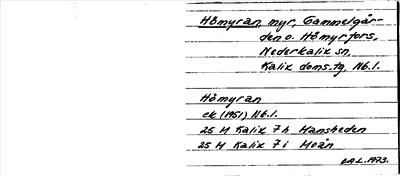 Hömyran, myr, Gammelgår-
den o. Hömyrfors,
Nederkalix sn,
Kalix doms.tg, Nb.l.
Hömyran
ek (1951) Nb.l.
25 M Kalix 7 h Mansheden
25 M Kalix 7 i Moån
D.A.L. 1973.